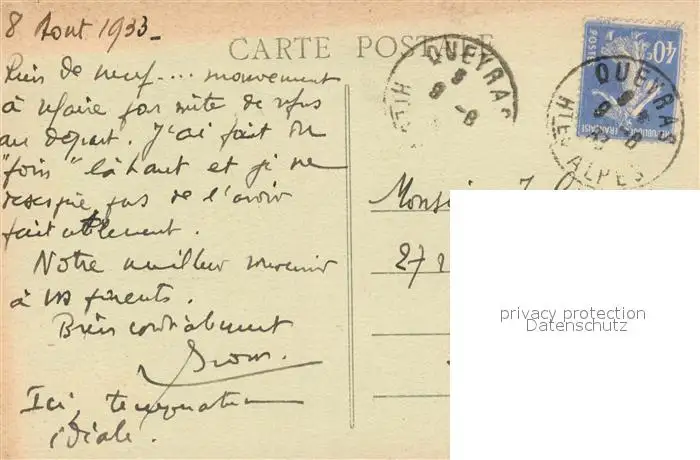 8 Aout 1933_
CARTE POSTALE
Rien de neuf.... mouvement
à refaire par suite de refus
au départ. J'ai fait un
"foin" là haut et je ne
désespère pas de l'avoir
fait utilement.
Notre meilleur souvenir
à vos parents.
Bien cordialement
Ici, température
idéale.
QUEYRAS
9 -8
HTES
QUEYRAS
9 -8
33
HTES ALPES
40c
POSTES
REPUBLIQUE FRANÇAISE
Monsieur J.
27 r
privacy protection
Datenschutz